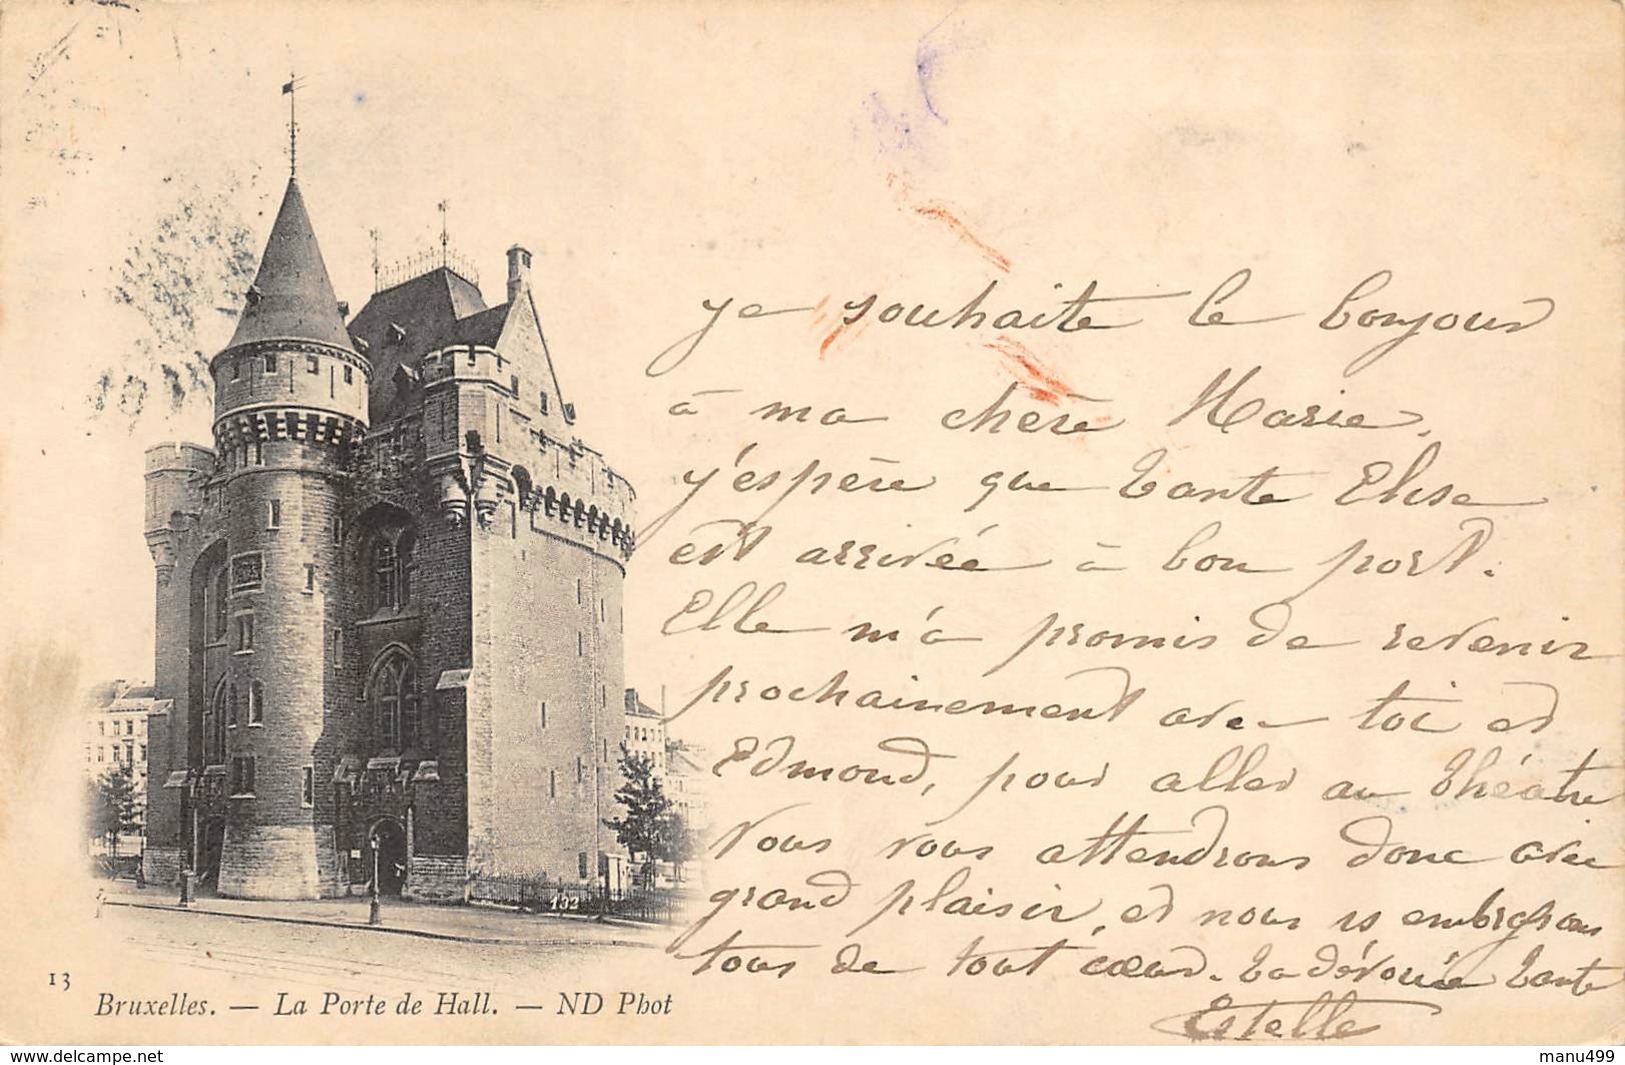 je souhaite le bonjour
à ma chère Marie,
j'espère que tante Elisa
est arrivée à bon port.
Elle m'a promis de revenir
prochainement avec toi et
Edmond, pour aller au théâtre
Nous vous attendrons donc avec
grand plaisir, et nous vs embrassons
tous de tout cœur. Ta dévouée tante
Estelle
132
13
Bruxelles. — La Porte de Hall. — ND Phot
https://www.delcampe.net
manu499